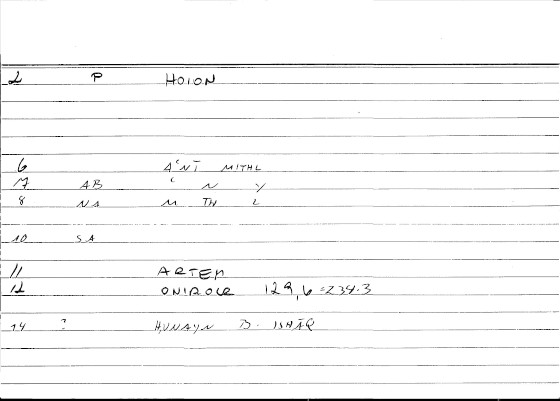 2 P HOION
6 A'NT MITHL
17 AB ' N Y
8 NA M TH L
10 SA
11 ARTEM
12 ONIROCR 129,6 = 234.3
14 ? HUNAYN B. ISHĀQ